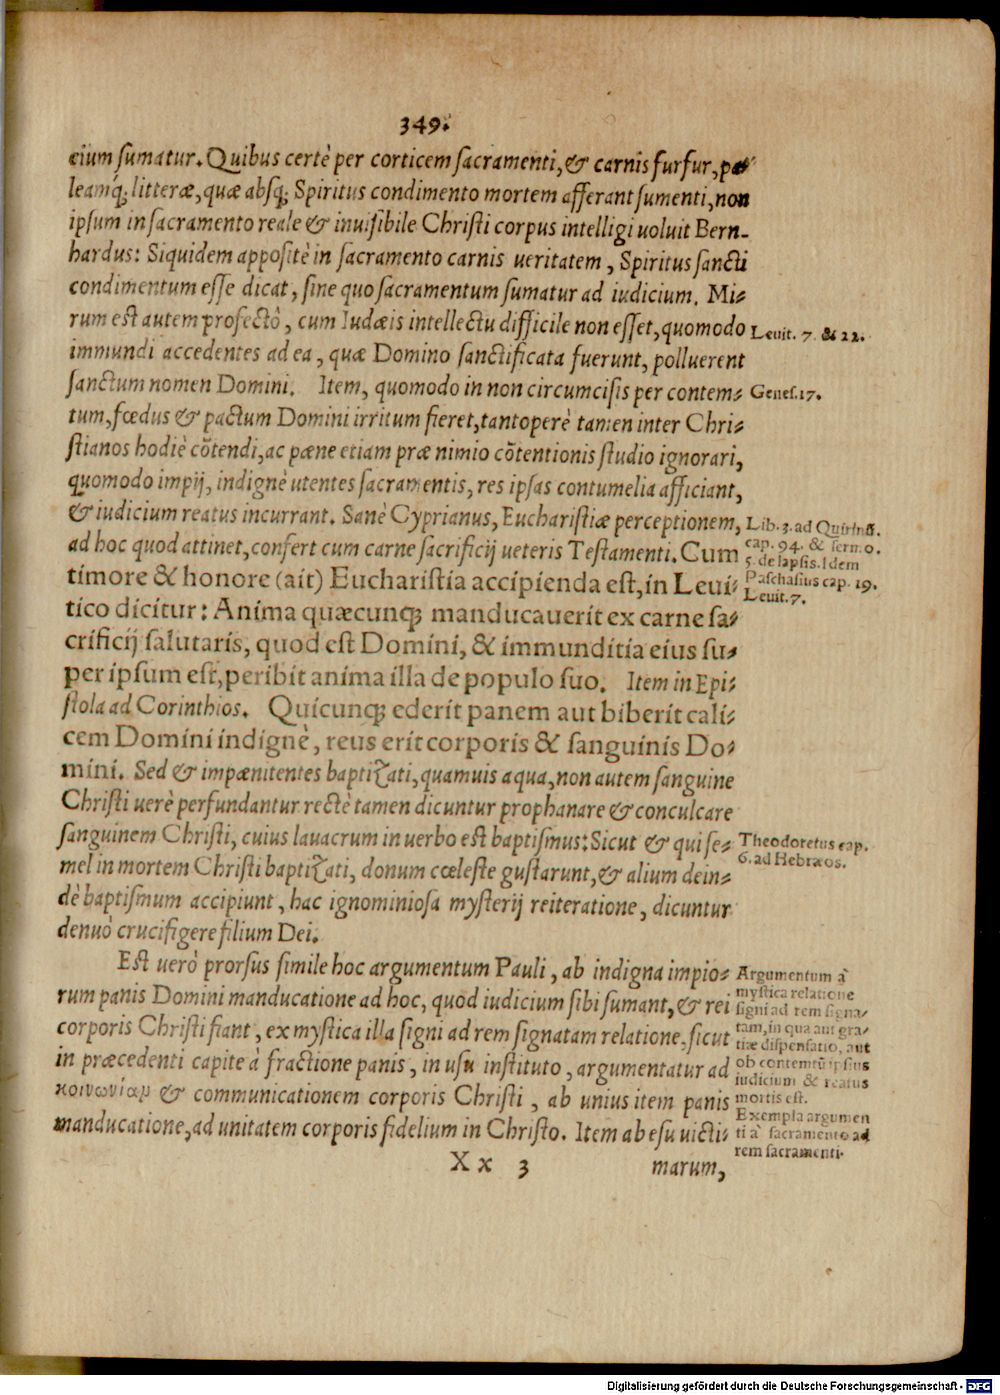 349.
cium sumatur. Quibus certè per corticem sacramenti, & carnis furfur, pa-
leamq́; litteræ, quæ absq; Spiritus condimento mortem afferant sumenti, non
ipsum in sacramento reale & inuisibile Christi corpus intelligi uoluit Bern-
hardus: Siquidem appositè in sacramento carnis ueritatem, Spiritus sancti
condimentum esse dicat, sine quo sacramentum sumatur ad iudicium. Mi-
rum est autem profectò, cum Iudæis intellectu difficile non esset, quomodo
Leuit. 7. & 22.
immundi accedentes ad ea, quæ Domino sanctificata fuerunt, polluerent
sanctum nomen Domini. Item, quomodo in non circumcisis per contem-
Genes. 17.
tum, fœdus & pactum Domini irritum fieret, tantoperè tamen inter Chri-
stianos hodiè cõtendi, ac pæne etiam præ nimio cõtentionis studio ignorari,
quomodo impij, indignè utentes sacramentis, res ipsas contumelia afficiant,
& iudicium reatus incurrant. Sanè Cyprianus, Eucharistiæ perceptionem,
ad hoc quod attinet, confert cum carne sacrificij ueteris Testamenti. Cum
timore & honore (ait) Eucharistia accipienda est, in Leui-
Lib. 3. ad Quirinũ.
cap. 94. & serm. o.
5. de lapsis. Idem
Paschasius cap. 19.
Leuit. 7.
tico dicitur: Anima quæcunq; manducauerit ex carne sa-
crificij salutaris, quod est Domini, & immunditia eius su-
per ipsum est, peribit anima illa de populo suo. Item in Epi-
stola ad Corinthios. Quicunq; ederit panem aut biberit cali-
cem Domini indignè, reus erit corporis & sanguinis Do-
mini. Sed & impænitentes baptizati, quamuis aqua, non autem sanguine
Christi uerè perfundantur rectè tamen dicuntur prophanare & conculcare
sanguinem Christi, cuius lauacrum in uerbo est baptismus: Sicut & qui se-
mel in mortem Christi baptizati, donum cœleste gustarunt, & alium dein-
Theodoretus cap.
6. ad Hebræos.
dè baptismum accipiunt, hac ignominiosa mysterij reiteratione, dicuntur
denuò crucifigere filium Dei.
Est uerò prorsus simile hoc argumentum Pauli, ab indigna impio-
rum panis Domini manducatione ad hoc, quod iudicium sibi sumant, & rei
corporis Christi fiant, ex mystica illa signi ad rem signatam relatione, sicut
in præcedenti capite à fractione panis, in usu instituto, argumentatur ad
κοινωνίαν & communicationem corporis Christi, ab unius item panis
manducatione, ad unitatem corporis fidelium in Christo. Item ab esu uicti-
Argumentum à
mystica relatione
signi ad rem signa-
tam, in qua aut gra-
tiæ dispensatio, aut
ob contemtũ ipsius
iudicium & reatus
mortis est.
Exempla argumen
ti à sacramento ad
rem sacramenti.
Xx 3
marum,
Digitalisierung gefördert durch die Deutsche Forschungsgemeinschaft - DFG